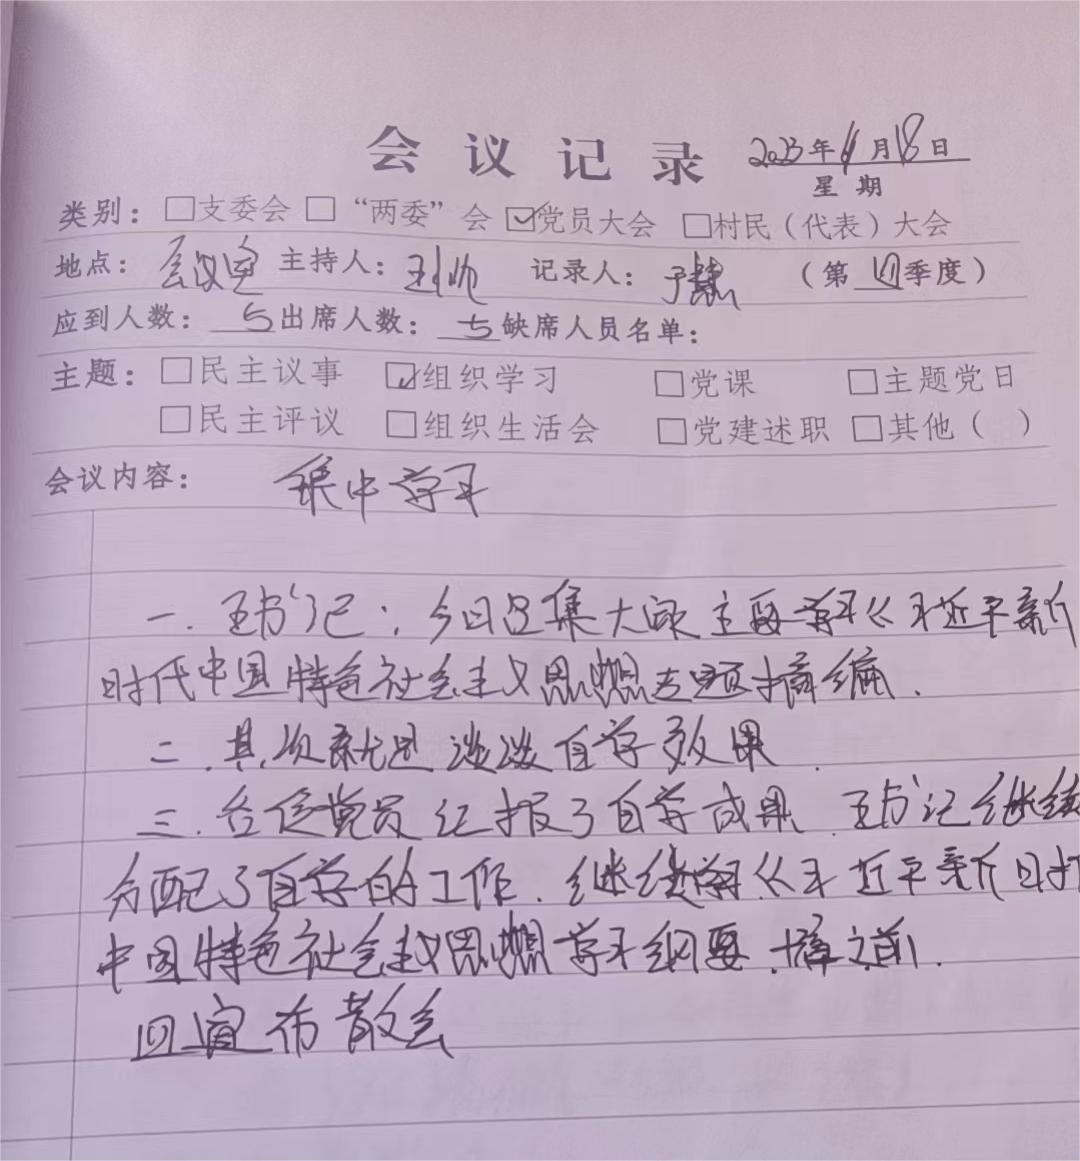 会议记录 2023年 月18日
星期
类别：□支委会 □“两委”会 ☑党员大会 □村民（代表）大会
地点：会议室 主持人： 记录人：于慧 （第四季度）
应到人数：5 出席人数：5 缺席人员名单：
主题：□民主议事 ☑组织学习 □党课 □主题党日
□民主评议 □组织生活会 □党建述职 □其他（ ）
会议内容： 集中学习
一、王书记：今日召集大家主要学习《习近平新
时代中国特色社会主义思想专题摘编.
二、其次就是谈谈自学效果.
三、各位党员汇报了自学成果.王书记继续
分配了自学的工作.继续学习《习近平新时
中国特色社会主义思想学习纲要.摘 .
四宣布散会